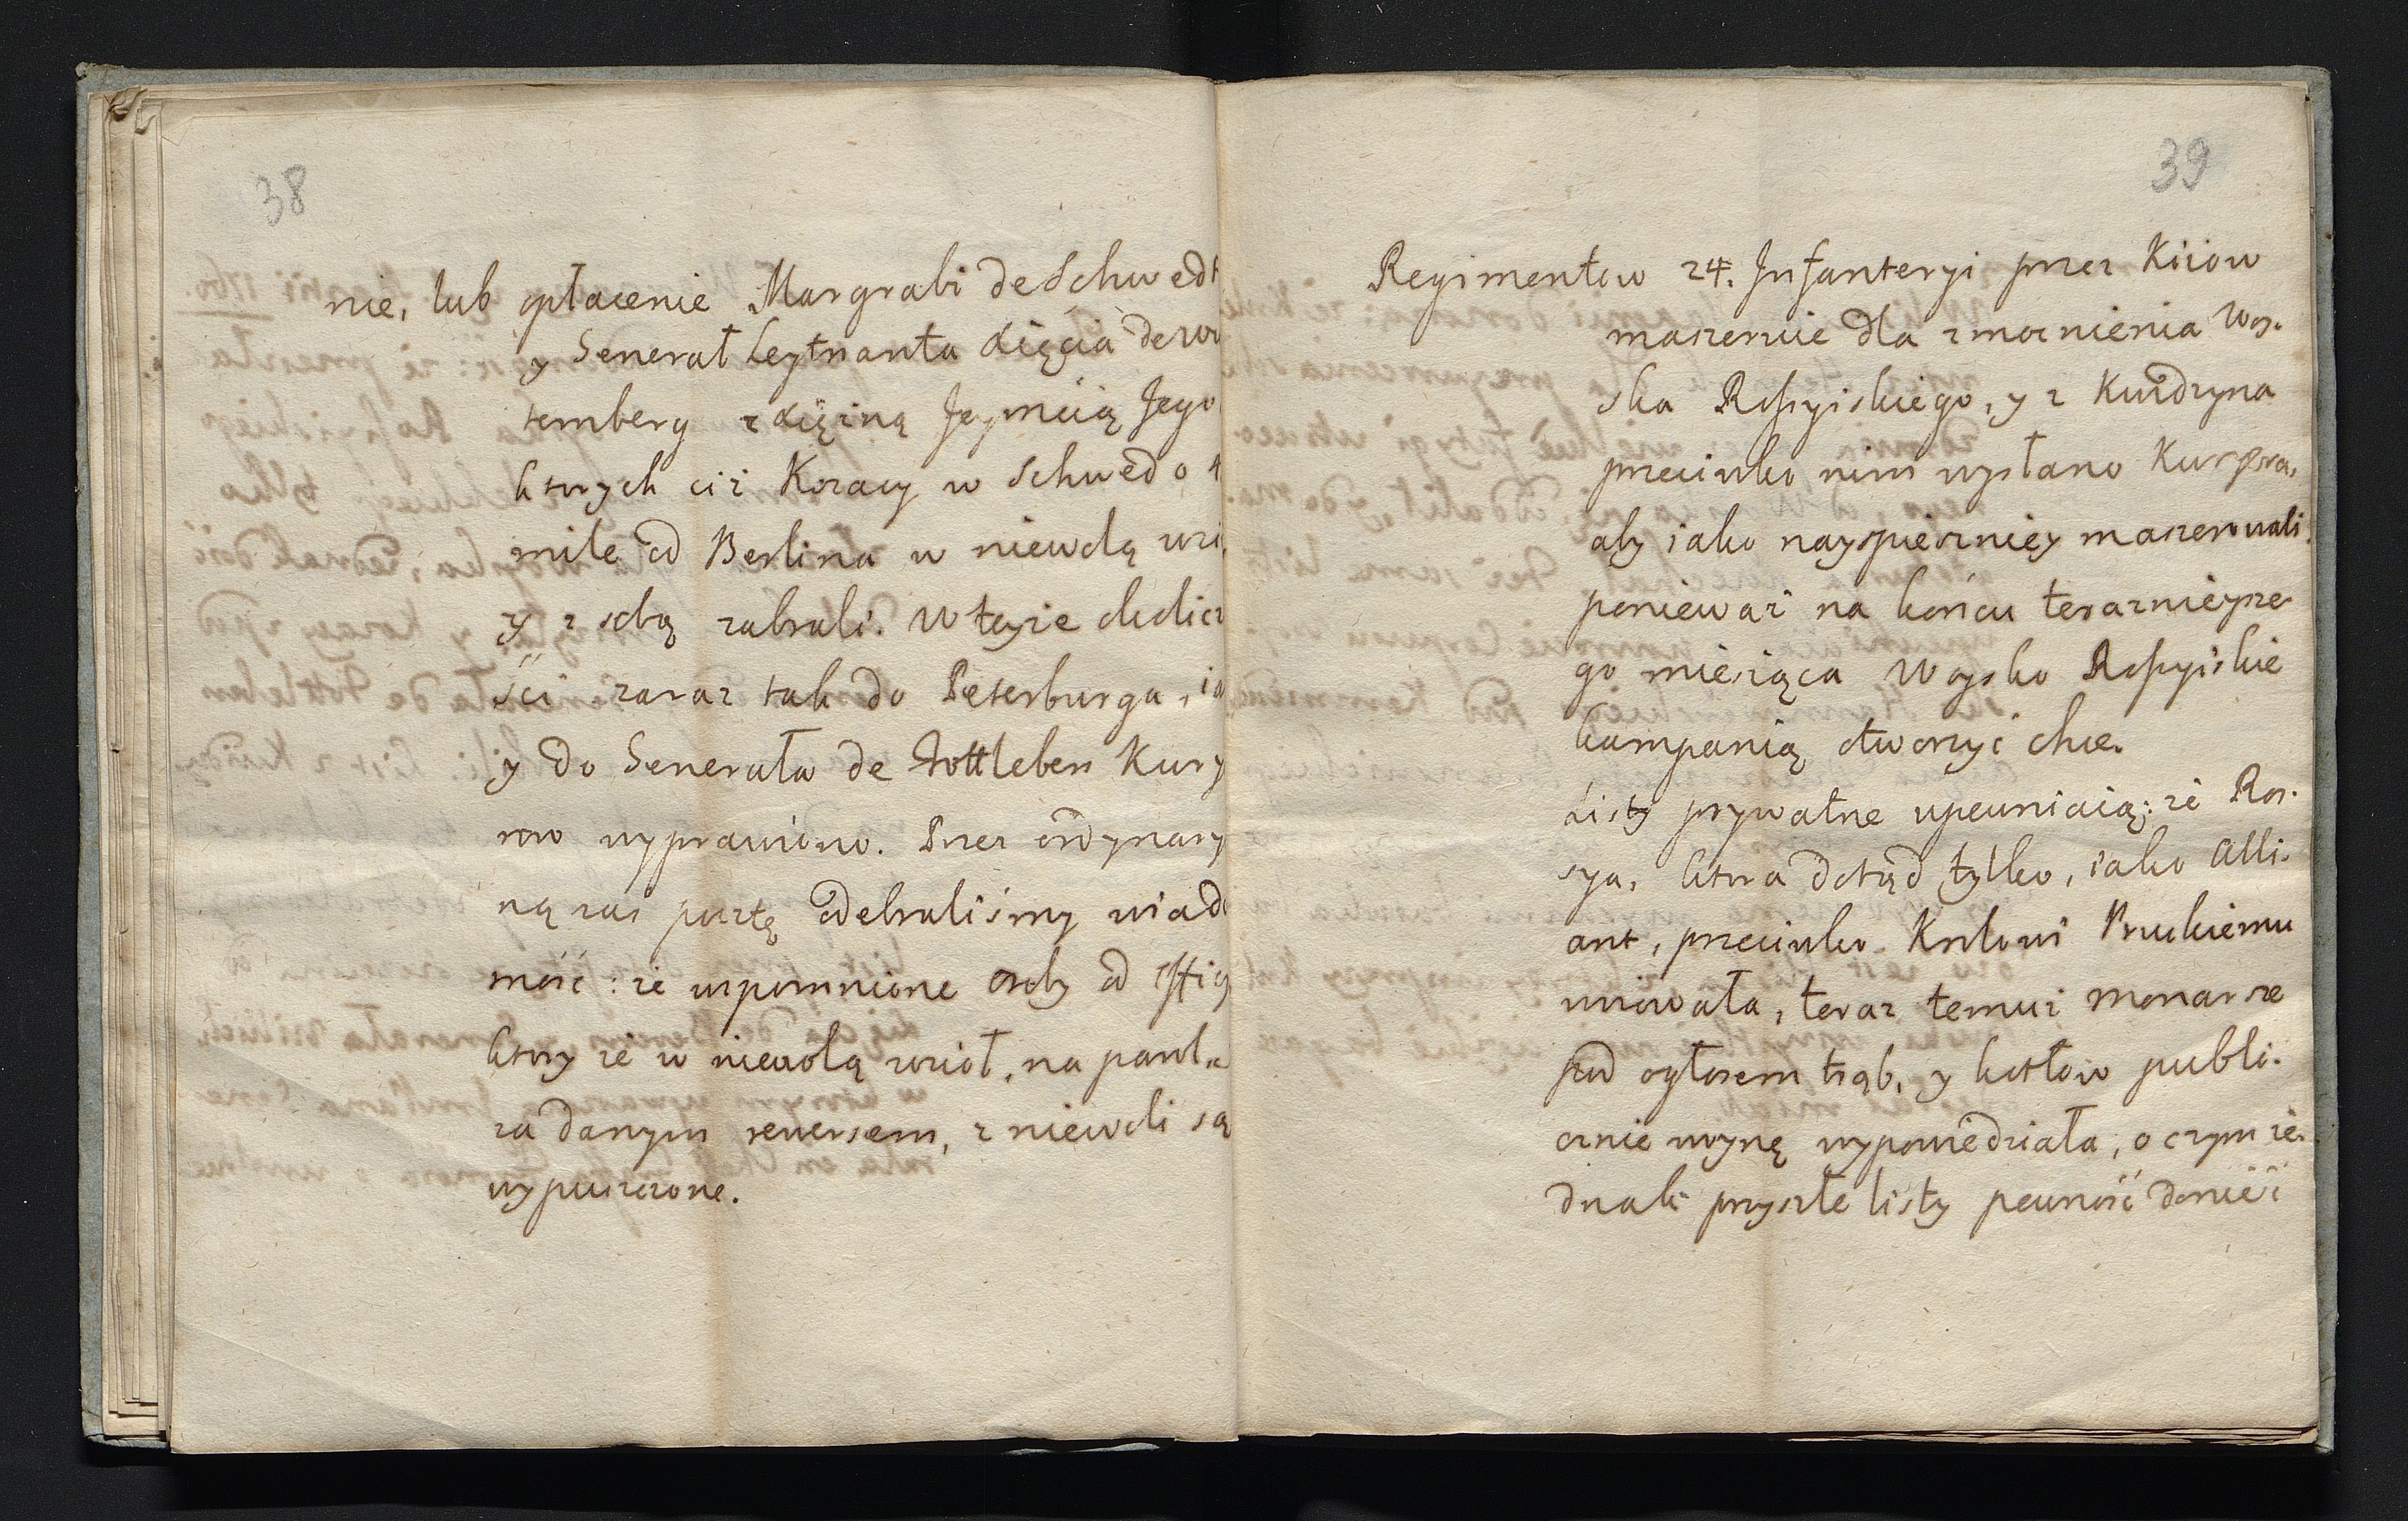 38
nie, lub opłacenie Margrabi de Schwedt
y Generał Leytnanta Xięcia de Wir
temberg z Xiężną Jeymcią Jego
ktorych ciż Kozacy w Schwedo 4
mile od Berlina w niewolą wzi
y z sobą zabrali. W teyże okolicz
ści zaraz tak do Petersburga, ia
y do Generała de Tottleben Kury
row wyprawiono. Przez ordynary
ną zaś pocztę odebraliśmy wiado
mość: że wspomnione osoby od Offic
ktory ie w niewolą wziął, na parol
za danym rewersem, z niewoli są
wypuszczone.
39
Regimentow 24. Infanteryi przez Kiiow
maszeruie dla zmocnienia Woy-
ska Rossyiskiego, y z Kwidzyna
przeciwko nim wysłano Kuryera,
aby iako nayspieszniey maszerowali.
poniewaz na końcu teraznieysze-
go miesiąca Woysko Rossyiskie
kampanią otworzyć chce.
Listy prywatne upewniaią: że Ros-
sya, ktora dotąd tylko, iako Alli-
ant, przeciwko Krolowi Pruskiemu
woiowała, teraz temuż Monarsze
pod ogłosem trąb, y kotłow publi-
cznie woynę wypowiedziała, o czym ie-
dnak przyszłe listy pewność donieść